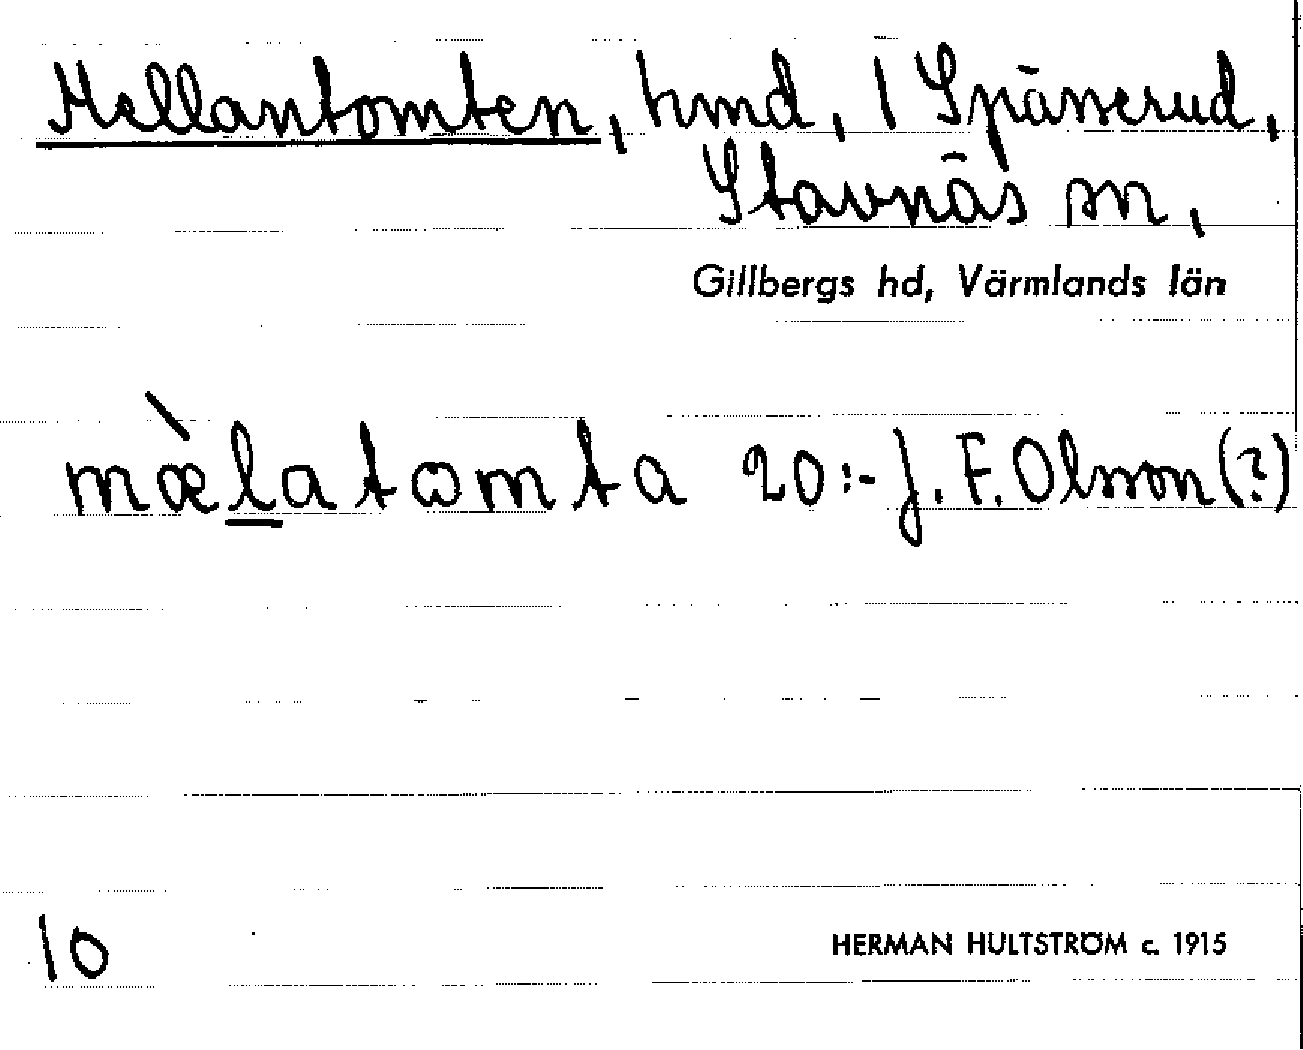 Mellantomten, hmd, 1 Spässerud,
Stavnäs sn,
Gillbergs hd, Värmlands län
mæ̀l̲atωmta 20:- J. F. Olsson (?)
10
HERMAN HULTSTRÖM c. 1915